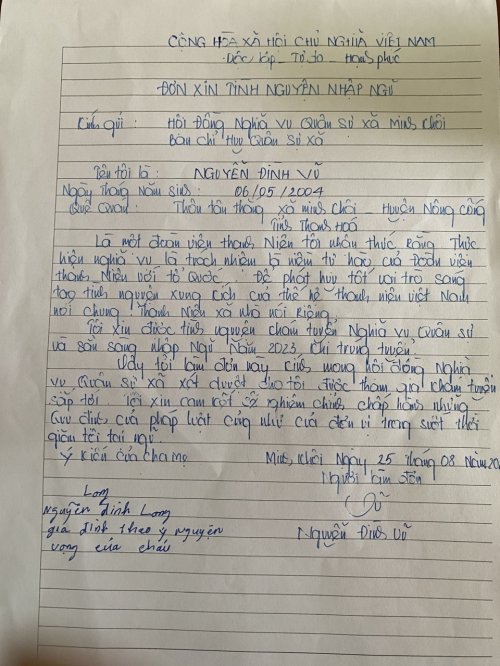 CỘNG HÒA XÃ HỘI CHỦ NGHĨA VIỆT NAM
Độc lập - Tự do - Hạnh phúc
ĐƠN XIN TÌNH NGUYỆN NHẬP NGŨ
Kính gửi : Hội Đồng Nghĩa Vụ Quân Sự Xã Minh Khôi
Ban chỉ Huy Quân Sự Xã
Tên tôi là : NGUYỄN ĐÌNH VŨ
Ngày Tháng Năm sinh : 06/05/2004
Quê Quán : Thôn tân thắng xã minh Khôi - Huyện Nông Cống
Tỉnh Thanh Hoá
Là một đoàn viên thanh Niên tôi nhận thức rằng Thực
hiện nghĩa vụ là trách nhiệm là niềm tự hào của Đoàn viên
thanh Niên với tổ Quốc. Để phát huy tốt vai trò sáng
tạo tình nguyện xung kích của thế hệ thanh niên việt Nam
nói chung Thanh Niên xã nhà nói Riêng
Tôi xin được tình nguyện khám tuyển Nghĩa vụ Quân sự
và sẵn sàng nhập Ngũ Năm 2023 Khi trúng tuyển
Vậy tôi làm đơn này kính mong hội đồng Nghĩa
vụ Quân sự xã xét duyệt cho tôi được tham gia khám tuyển
sắp tới Tôi xin cam kết sẽ nghiêm chỉnh chấp hành những
Quy định của pháp luật cũng như của đơn vị trong suốt thời
gian tôi tại ngũ.
Ý kiến của cha mẹ
Minh Khôi Ngày 25 tháng 08 Năm
Người làm đơn
Vũ
Nguyễn Đình Vũ
Long
Nguyễn Đình Long
gia đình theo ý nguyện
vọng của cháu